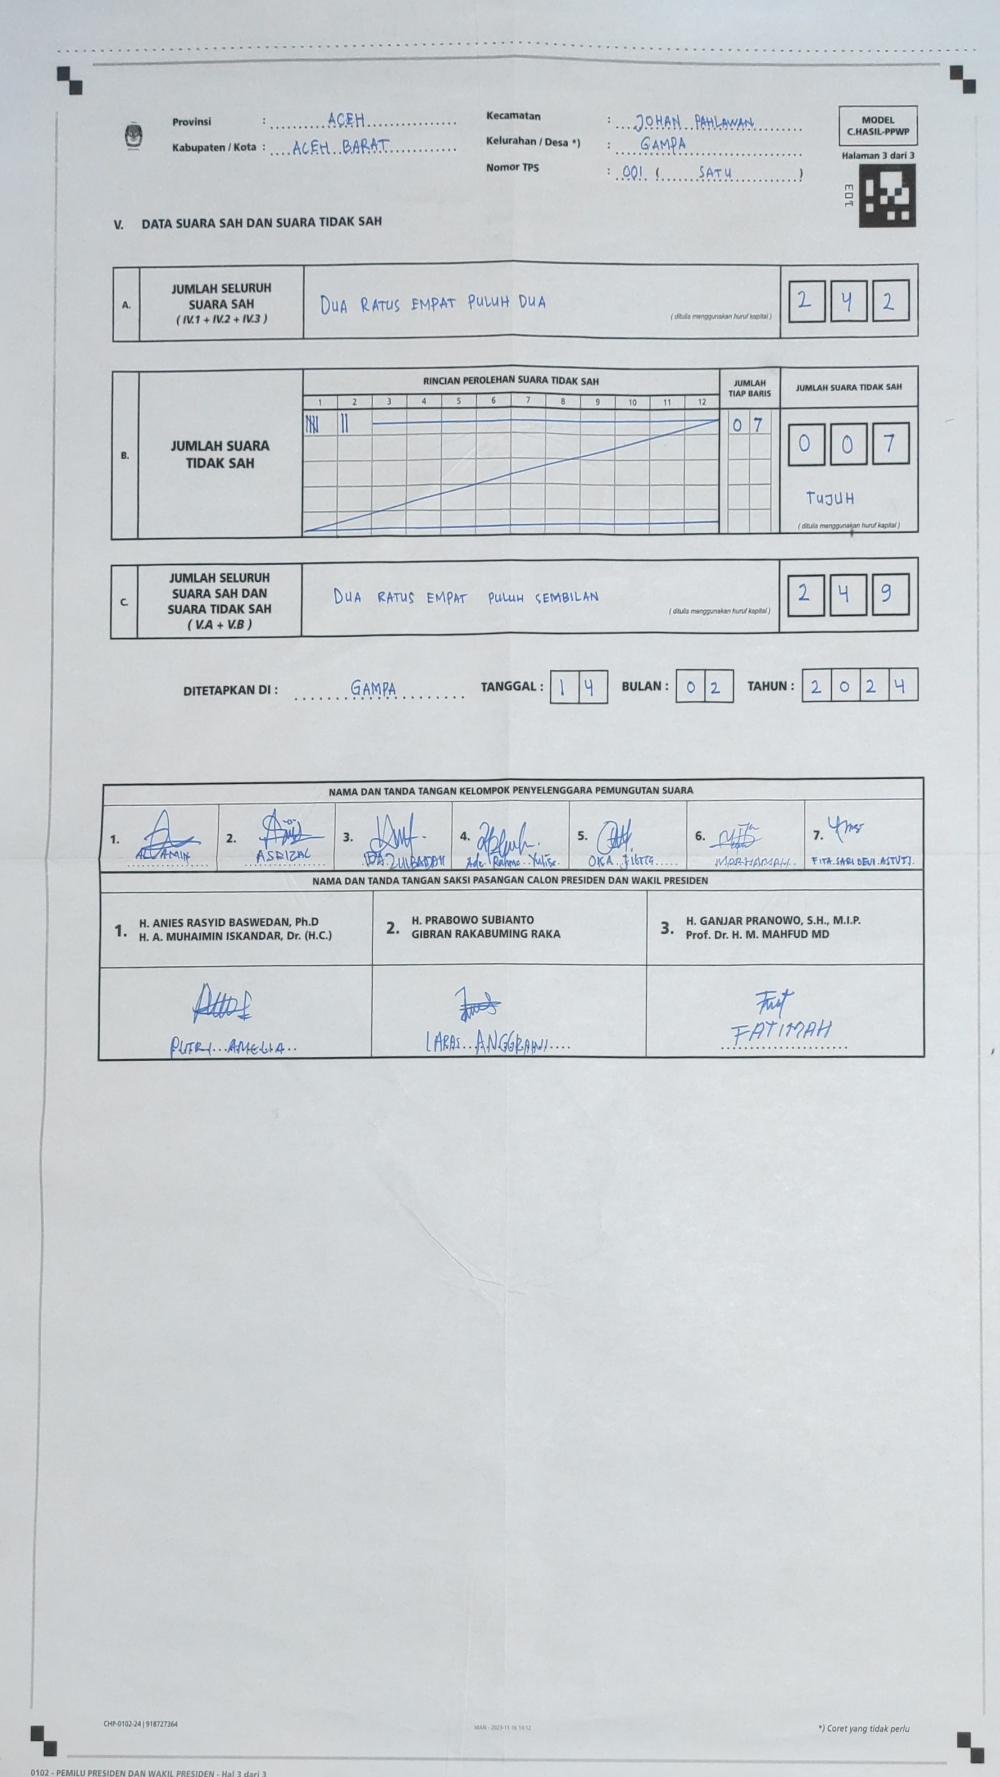 Provinsi : ACEH
Kabupaten / Kota : ACEH BARAT
Kecamatan : JOHAN PAHLAWAN
Kelurahan / Desa *) : GAMPA
Nomor TPS : 001 ( SATU )
MODEL
C.HASIL-PPWP
Halaman 3 dari 3
V. DATA SUARA SAH DAN SUARA TIDAK SAH
A. JUMLAH SELURUH
SUARA SAH
( IV.1 + IV.2 + IV.3 )
DUA RATUS EMPAT PULUH DUA
( ditulis menggunakan huruf kapital )
2 4 2
B. JUMLAH SUARA
TIDAK SAH
RINCIAN PEROLEHAN SUARA TIDAK SAH
1 2 3 4 5 6 7 8 9 10 11 12
JUMLAH
TIAP BARIS
0 7
JUMLAH SUARA TIDAK SAH
0 0 7
TUJUH
( ditulis menggunakan huruf kapital )
C. JUMLAH SELURUH
SUARA SAH DAN
SUARA TIDAK SAH
( V.A + V.B )
DUA RATUS EMPAT PULUH SEMBILAN
( ditulis menggunakan huruf kapital )
2 4 9
DITETAPKAN DI : GAMPA TANGGAL : 1 4 BULAN : 0 2 TAHUN : 2 0 2 4
NAMA DAN TANDA TANGAN KELOMPOK PENYELENGGARA PEMUNGUTAN SUARA
1. 2. 3. 4. 5. 6. 7.
ASRIZAL
MARHAMAH
FITA SARI DEVI ASTUTI
NAMA DAN TANDA TANGAN SAKSI PASANGAN CALON PRESIDEN DAN WAKIL PRESIDEN
1. H. ANIES RASYID BASWEDAN, Ph.D
H. A. MUHAIMIN ISKANDAR, Dr. (H.C.)
2. H. PRABOWO SUBIANTO
GIBRAN RAKABUMING RAKA
3. H. GANJAR PRANOWO, S.H., M.I.P.
Prof. Dr. H. M. MAHFUD MD
PUTRI AMELIA
LARAS ANGGRAINI
FATIMAH
CHP-0102-24 | 918727364
*) Coret yang tidak perlu
0102 - PEMILU PRESIDEN DAN WAKIL PRESIDEN - Hal 3 dari 3